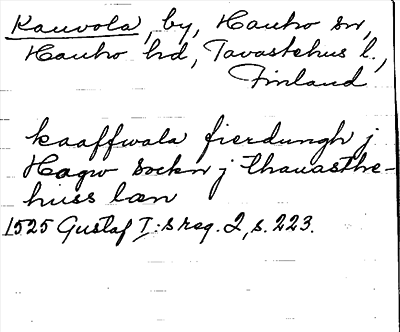 Kauvola, by, Hauho sn,
Hauho hd, Tavastehus l.,
Finland
kaaffwala fierdungh j
Hagw sockn j thauasthe-
huss læn
1525 Gustaf I:s reg. 2, s. 223.